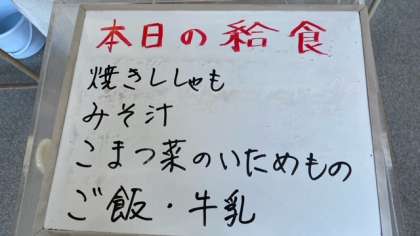 本日の給食
焼きししゃも
みそ汁
こまつ菜のいためもの
ご飯・牛乳